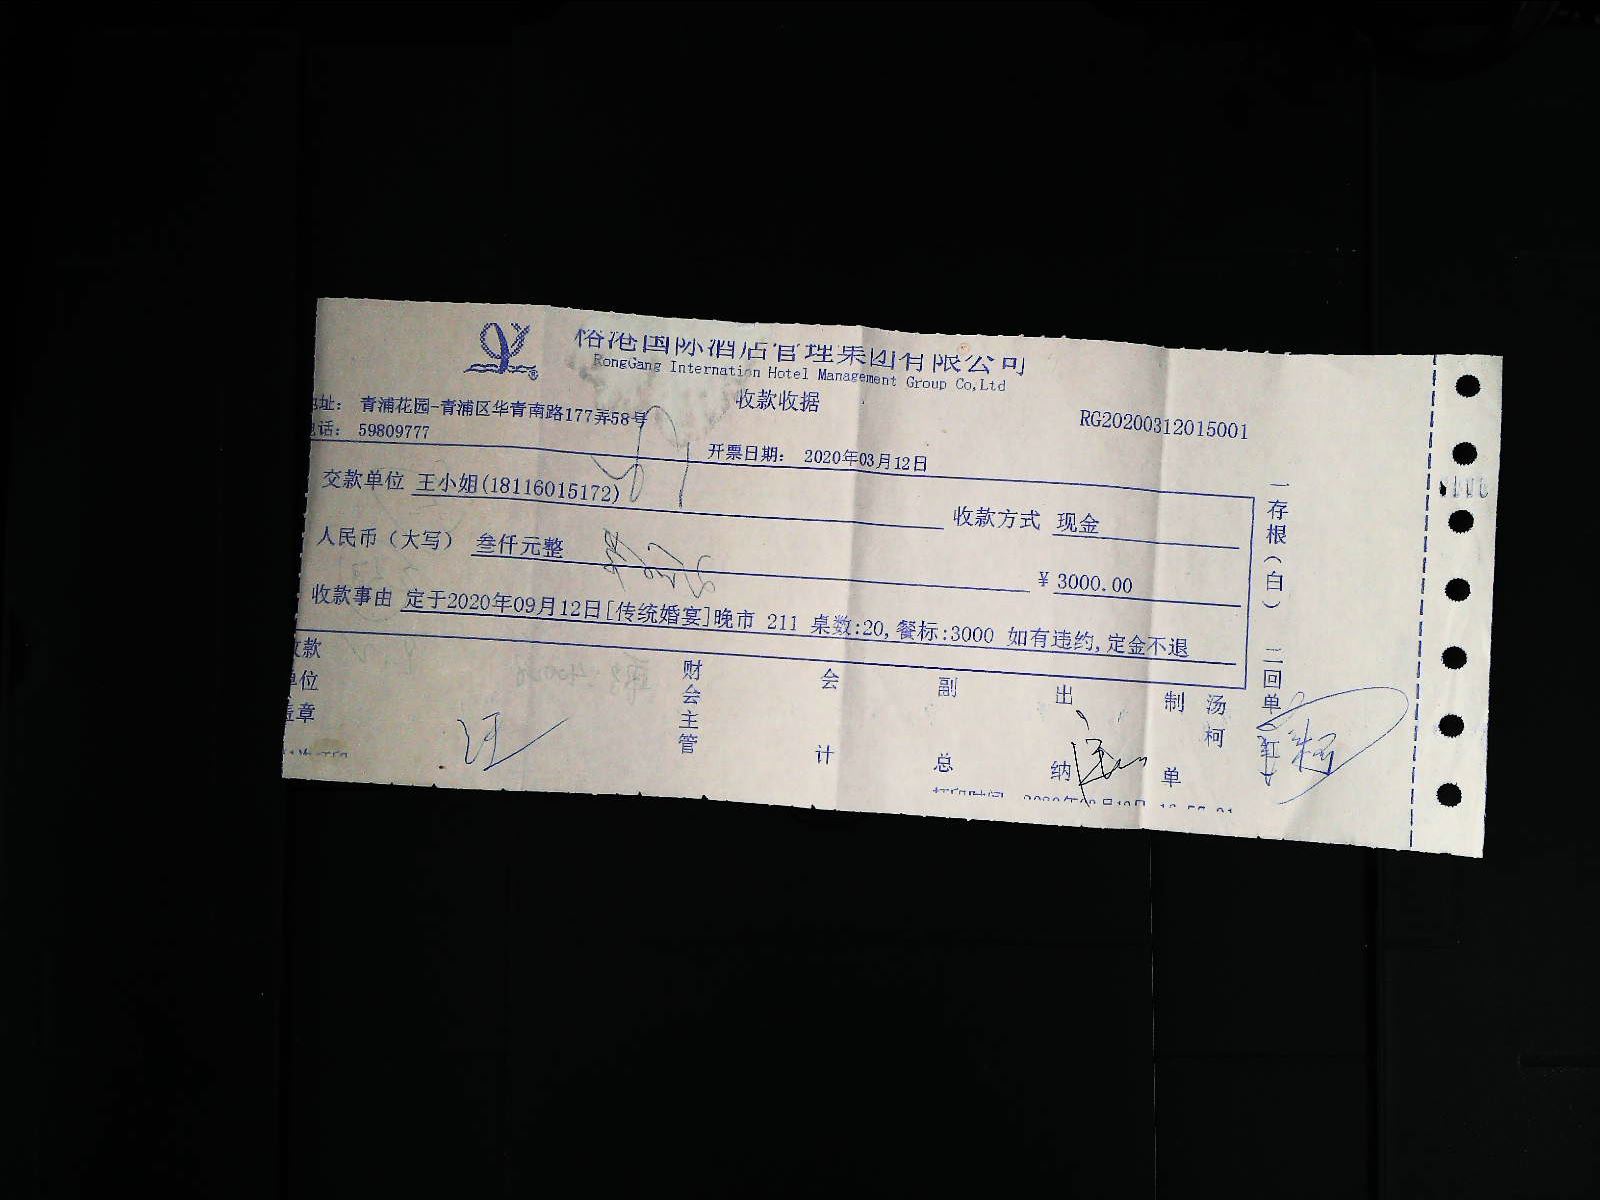 榕港国际酒店管理集团有限公司
RongGang Internation Hotel Management Group Co,Ltd
收款收据
地址： 青浦花园-青浦区华青南路177弄58号
RG20200312015001
电话： 59809777
开票日期： 2020年03月12日
交款单位 王小姐(18116015172)
收款方式 现金
人民币（大写） 叁仟元整
￥3000.00
收款事由 定于2020年09月12日[传统婚宴]晚市 211 桌数:20,餐标:3000 如有违约,定金不退
收款单位盖章
财会主管
会计
副总
出纳
制单
汤柯
一存根（白） 二回单（红）
汪